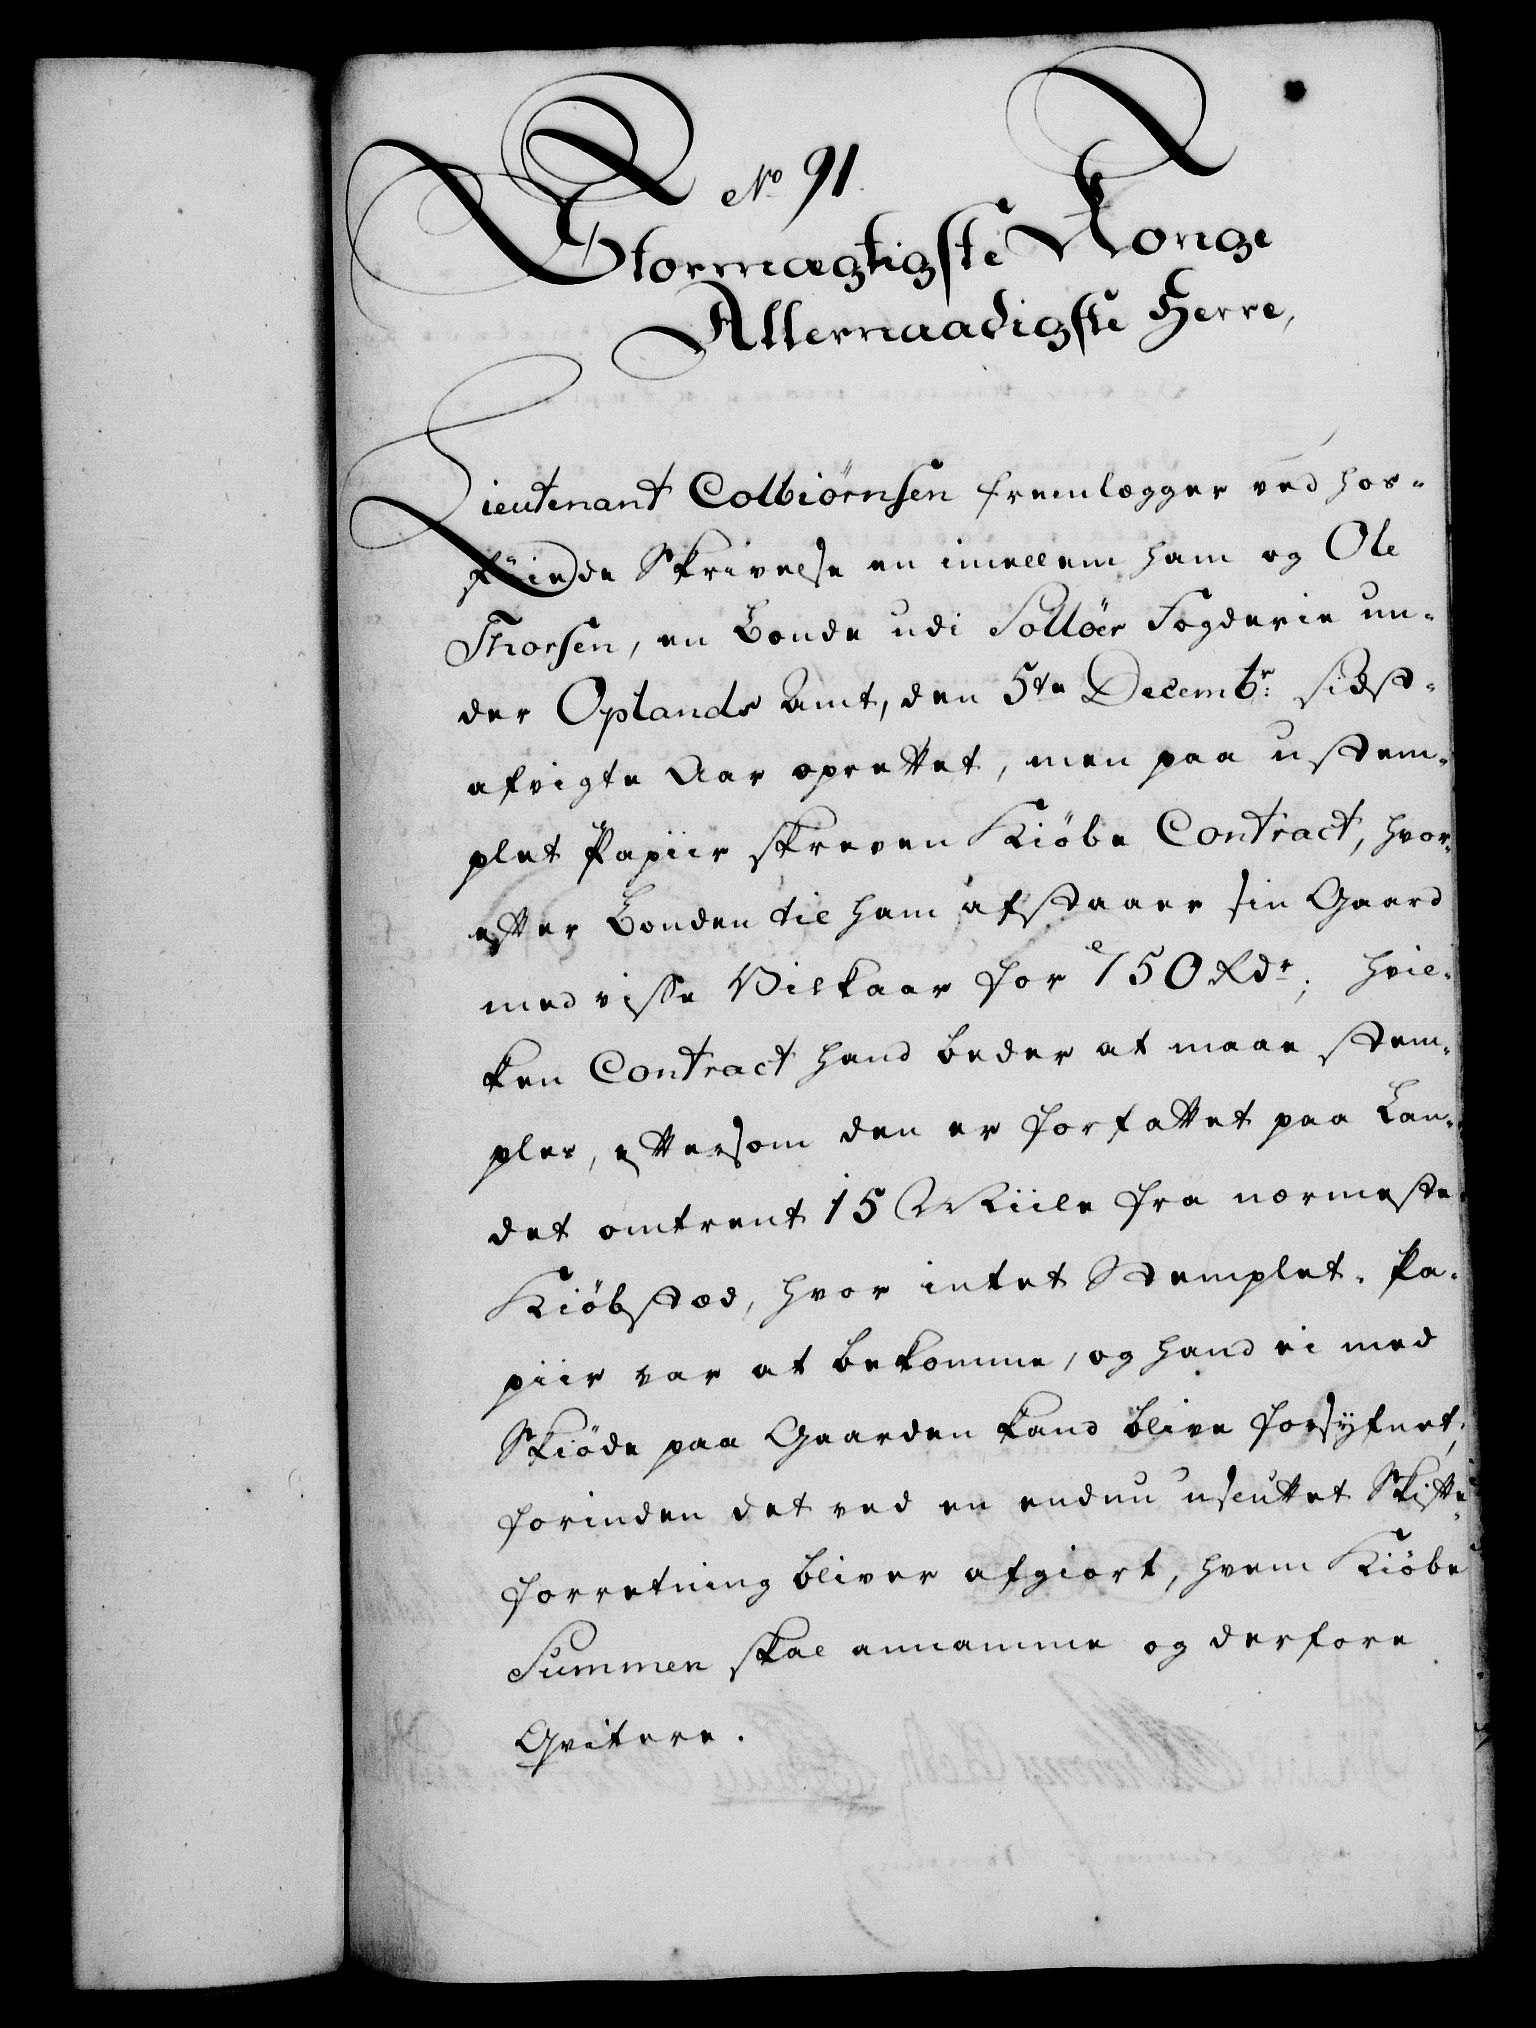 No 91.
Stormægtigste Konge
Allernaadigste Herre,
Lieutenant Colbiörnsen fremlægger ved hos-
föiede Skrivelse en imellem ham og Ole
Thorsen, en Bonde udi Sollöer Fogderie un-
der Oplands Amt, den 5te Decembr: sidst-
afvigte Aar oprettet, men paa ustem-
plet Papiir skreven Kiöbe Contract, hvor-
efter Bonden til ham afstaaer sin Gaard
med visse Vilkaar for 750 Rdr; hvil-
ken Contract hand beder at maae stem-
ples, eftersom den er forfattet paa Lan-
det omtrent 15 Miile fra nærmeste
Kiöbstæd, hvor intet Stemplet-Pa-
piir var at bekomme, og hand ei med
Skiöde paa Gaarden kand blive forsÿfnet,
forinden det ved en endnu usluttet Skifte-
forretning bliver afgiort, hvem Kiöbe
Summen skal annamme og derfore
Qvitere.